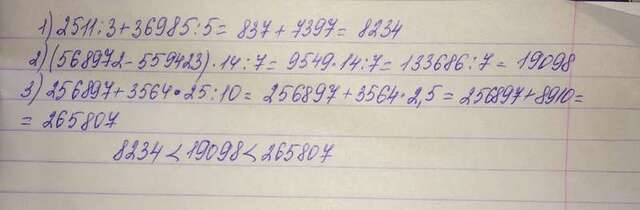 1) 2511:3+36985:5= 837+7397= 8234
2) (568972-559423)·14:7= 9549·14:7= 133686:7= 19098
3) 256897+3564·25:10= 256897+3564·2,5= 256897+8910=
= 265807
8234<19098<265807